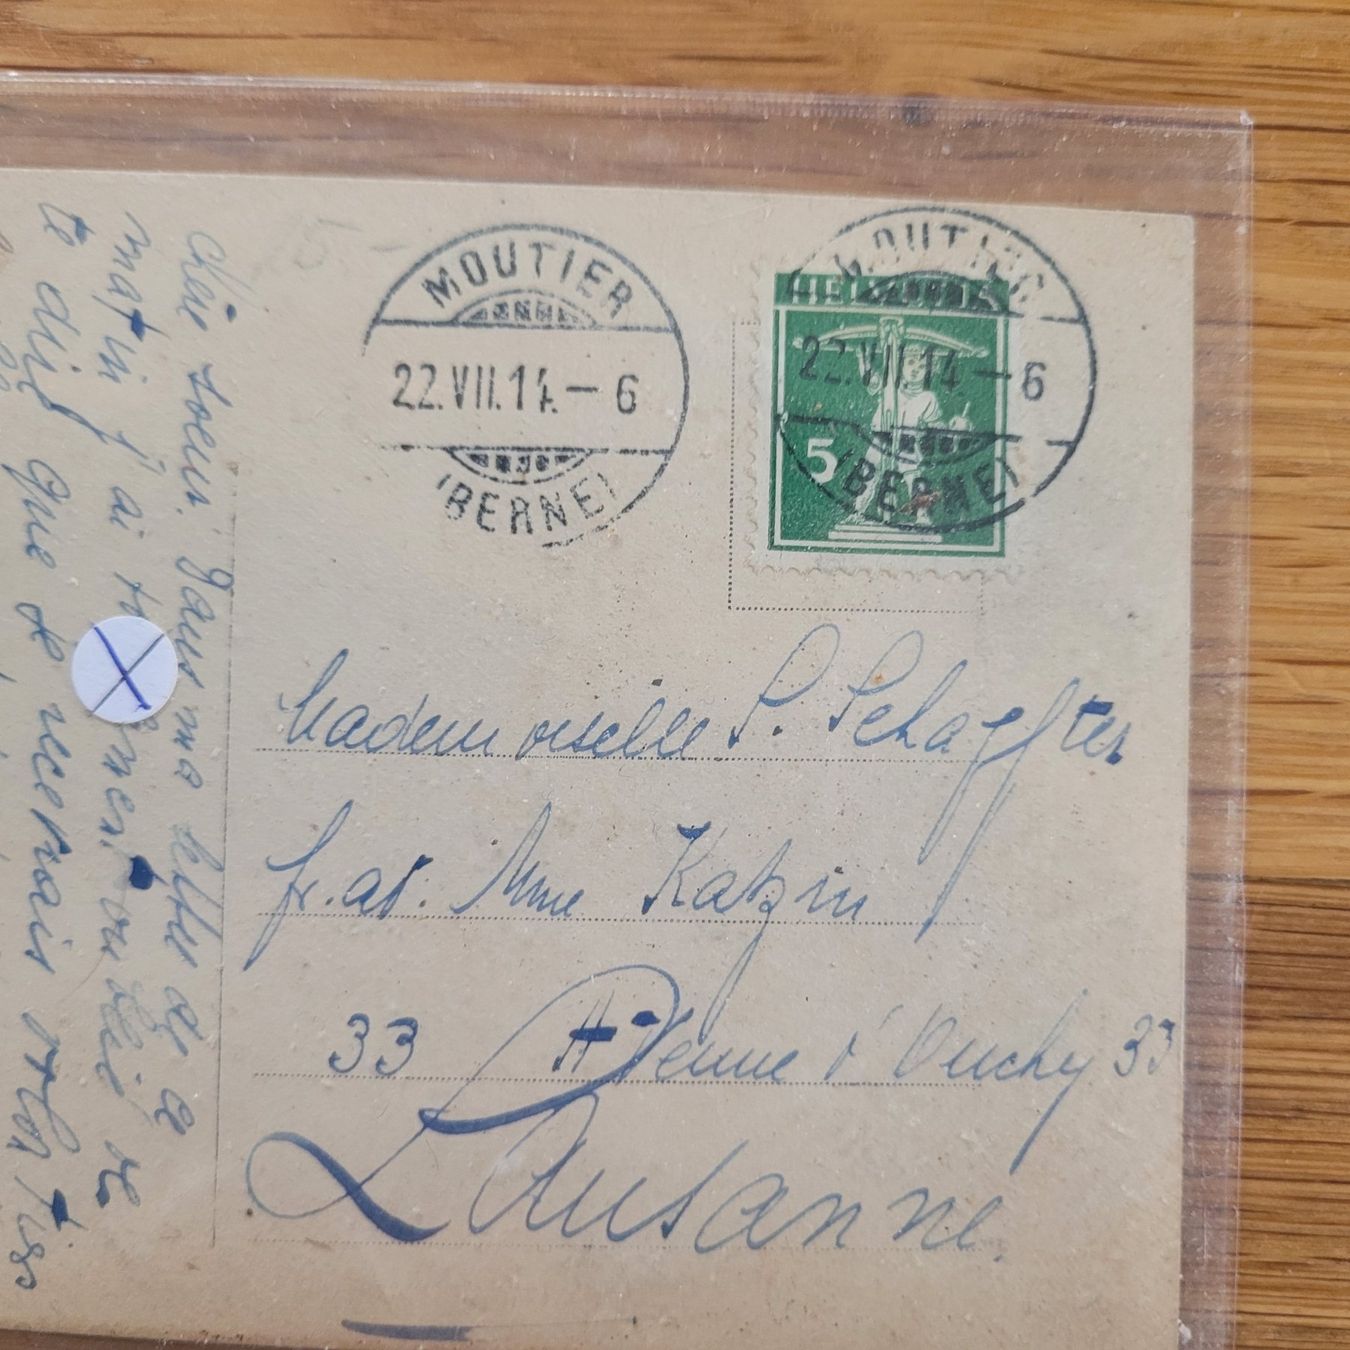 MOUTIER
22.VII.14.—6
(BERNE)
HELVETIA
MOUTIER
22.VII.14—6
(BERNE)
5
Mademoiselle S. Schaffter
fr. ad. Mme Katzin
33 Avenue d'Ouchy 33
Lausanne.
chère soeur. Dans ma lettre de ce
matin j'ai oublié de
te dire que je recevrais